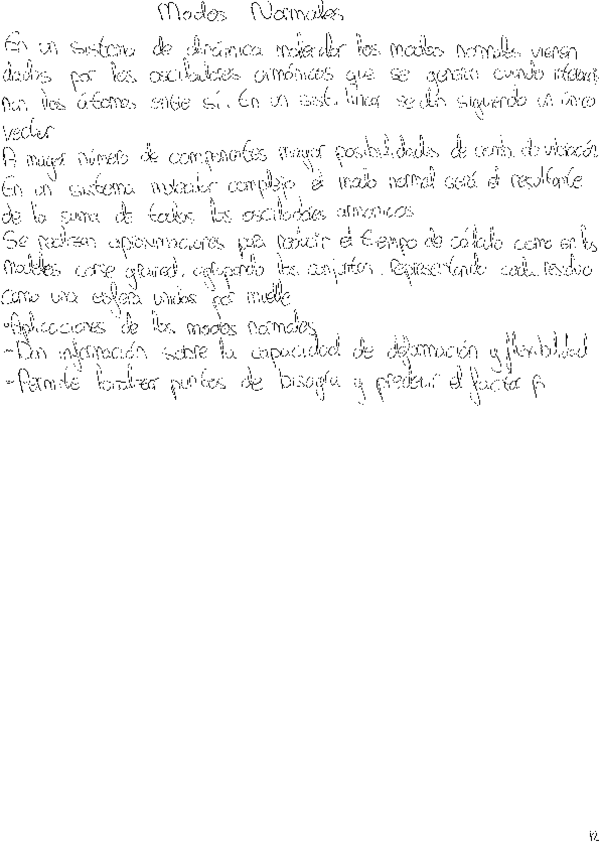 Modos Normales
En un sistema de dinámica molecular los modos normales vienen
dados por los osciladores armónicos que se generan cuando interaccio
nan los átomos entre sí. En un sist. linear se dan siguiendo un único
vector
A mayor número de componentes mayor posibilidades de comb. de vibración
En un sistema molecular complejo el modo normal será el resultante
de la suma de todos los osciladores armonicos
Se realizan aproximaciones para reducir el tiempo de cálculo como en los
modelos corse grained, agrupando los conjuntos. Representando cada residuo
como una esfera unidas por muelle
-Aplicaciones de los modos normales
-Dan información sobre la capacidad de deformación y flexibilidad
-Permite localizar puntos de bisagra y predecir el factor β
12